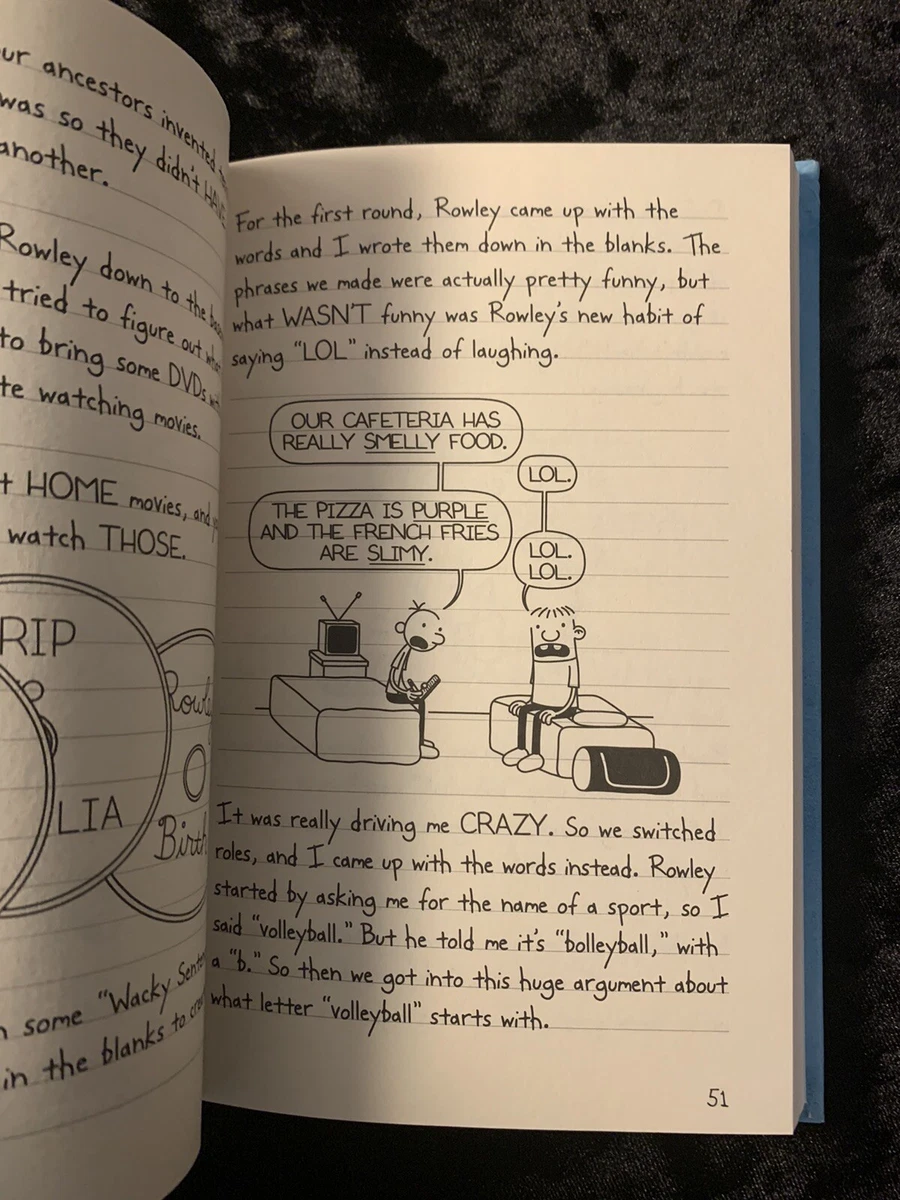 ur ancestors invented
was so they didn't
another.
Rowley down to the
tried to figure out
to bring some DVDs
te watching movies.
HOME movies, and
watch THOSE.
RIP
LIA
some "Wacky
in the blanks to
For the first round, Rowley came up with the
words and I wrote them down in the blanks. The
phrases we made were actually pretty funny, but
what WASN'T funny was Rowley's new habit of
saying "LOL" instead of laughing.
OUR CAFETERIA HAS
REALLY SMELLY FOOD.
THE PIZZA IS PURPLE
AND THE FRENCH FRIES
ARE SLIMY.
LOL.
LOL.
LOL.
It was really driving me CRAZY. So we switched
roles, and I came up with the words instead. Rowley
started by asking me for the name of a sport, so I
said "volleyball." But he told me it's "bolleyball," with
a "b." So then we got into this huge argument about
what letter "volleyball" starts with.
51